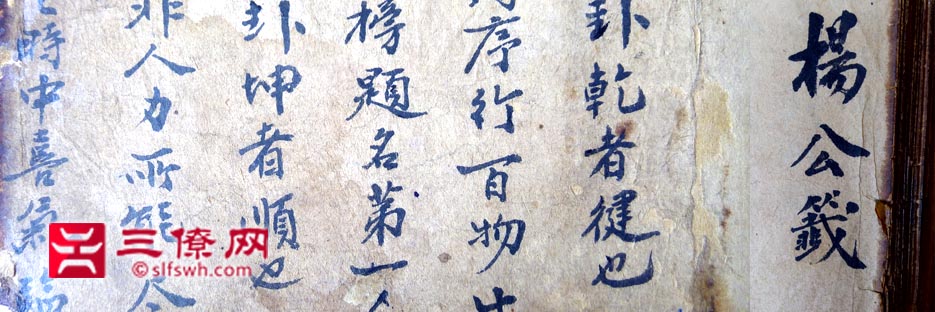 楊公籤
卦乾者健也
序行百物生
榜題名第一人
卦坤者順也
非人力所能尽
時申喜氣臨
三僚网
©slfswh.com